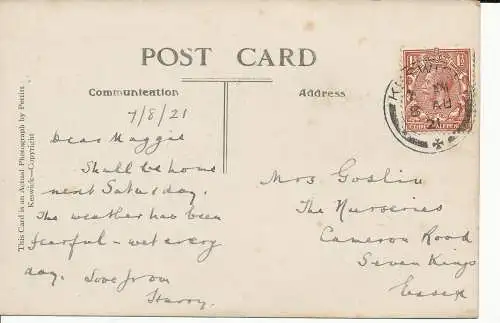 POST CARD
Communication
Address
7/8/21
Dear Maggie
Shall be home
next Saturday.
The weather has been
fearful - wet every
day. Love from
Harry.
Mrs Goslin
The Nurseries
Cameron Road
Seven Kings
Essex
This Card is an Actual Photograph by Pettitt
Keswick—Copyright